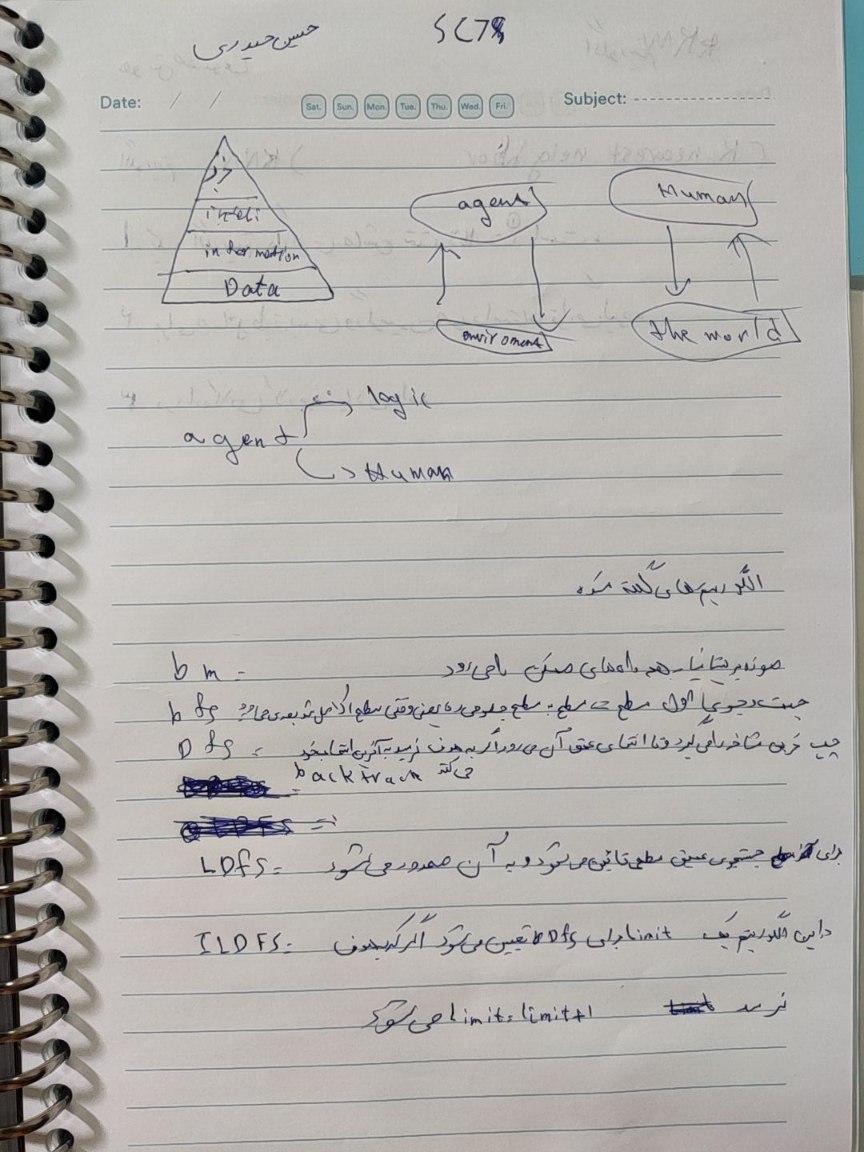 حسین حیدری
Date: / / Sat. Sun. Mon. Tue. Thu. Wed. Fri. Subject:
agent Human
information
Data
enviroment the world
logic
agent
Human
الگوریتم‌های گفته شده
bm = همه راه‌های ممکن را می‌رود
bfs جست و جوی اول سطح => سطح به سطح جلو می‌ره یعنی وقتی سطح اول کامل شد بعدی می‌رود
Dfs = چپ ترین شاخه را می‌گیرد و تا انتهای عمق آن می‌رود اگر به هدف نرسید به آخرین انشعاب خود
backtrack می‌کند
LDfs = برای جستجوی عمیق سطحی تعیین می‌شود و به آن محدود می‌شود
ILDFS = در این الگوریتم یک limit برای Dfs تعیین می‌شود اگر به هدف
نرسد limit = limit+1 می‌شود